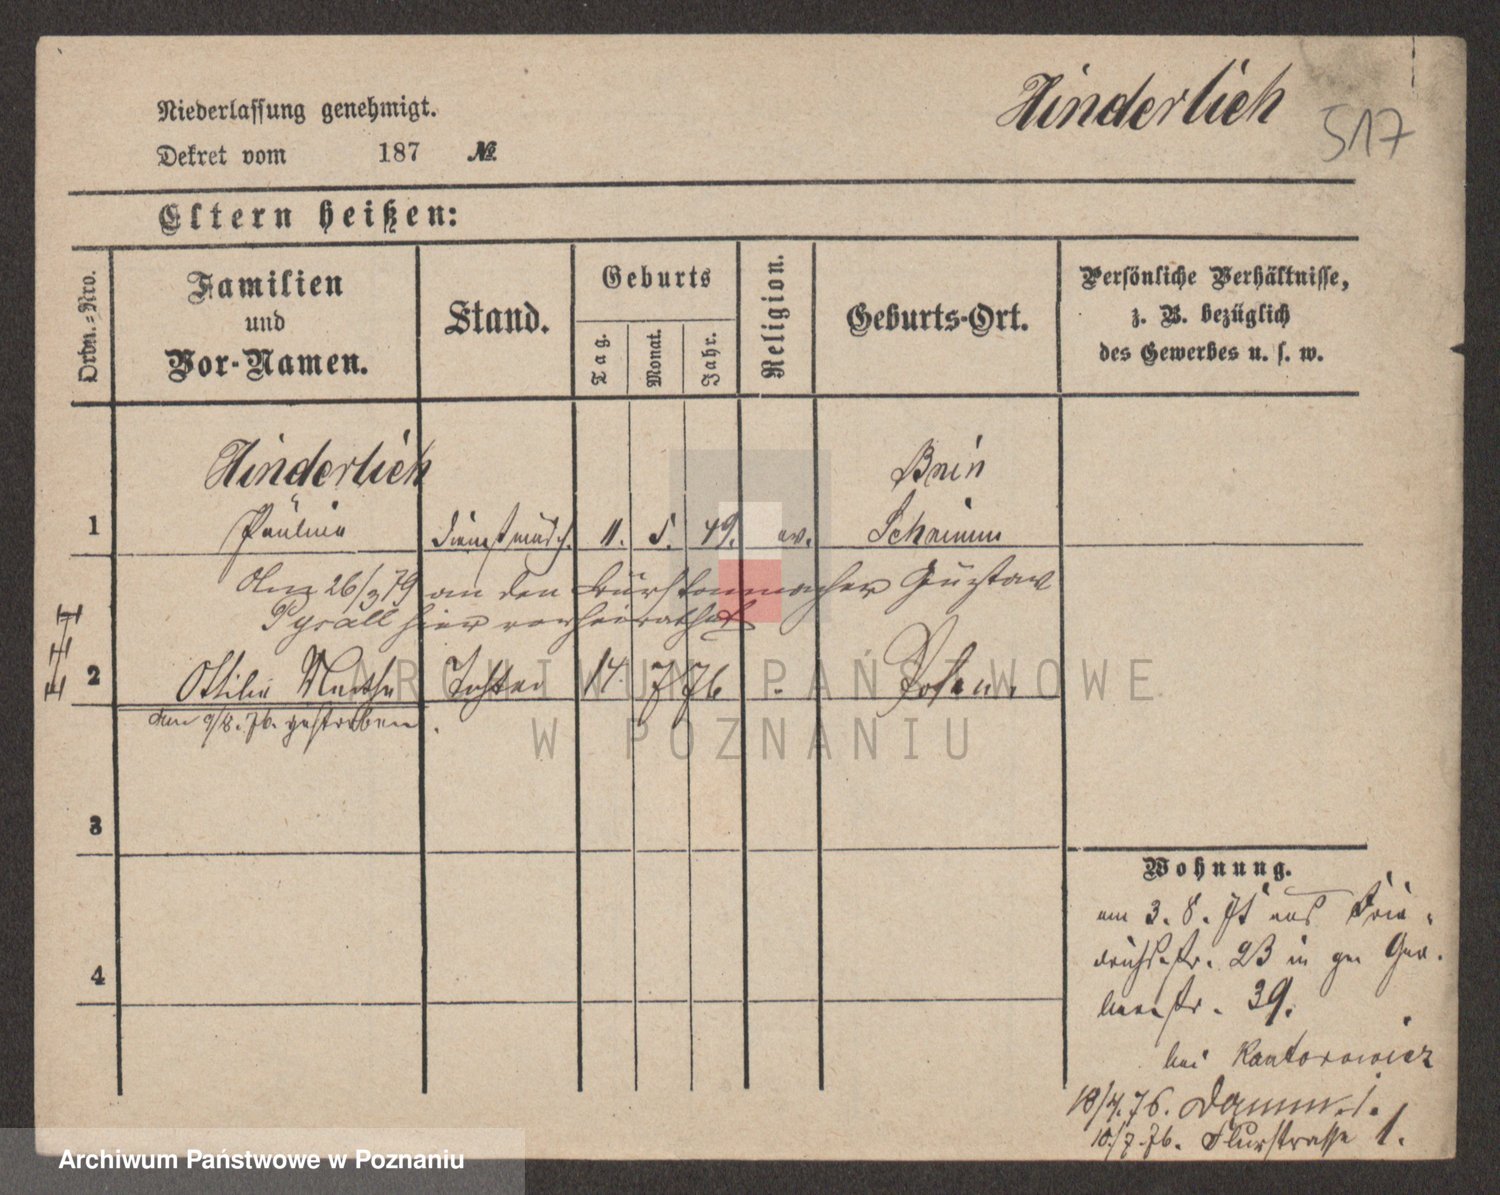 Hinderlich 517
Niederlassung genehmigt.
Dekret vom 187 №
Eltern heißen:
Ordn.-Nro.
Familien
und
Vor-Namen.
Stand.
Geburts
Tag.
Monat.
Jahr.
Religion.
Geburts-Ort.
Persönliche Verhältnisse,
z. B. bezüglich
des Gewerbes u. s. w.
Hinderlich Bnin
1 Pauline Dienstmdch. 11. 5. 49. ev. Schrimm
26/3 79 an den Bürstenmacher Gustav
Pyrall hier verheirathet
2 Ottilie Martha Tochter 14. 7 76 Posen.
am 9/8. 76. gestorben.
3
4
Wohnung.
am 3. 8. 75 aus Frie-
drichsstr. 23 in
str. 39.
bei Kantorowicz
18/4. 76. Damm. 1.
10/7. 76. Flurstrasse 1.
ARCHIWUM PAŃSTWOWE
W POZNANIU
Archiwum Państwowe w Poznaniu